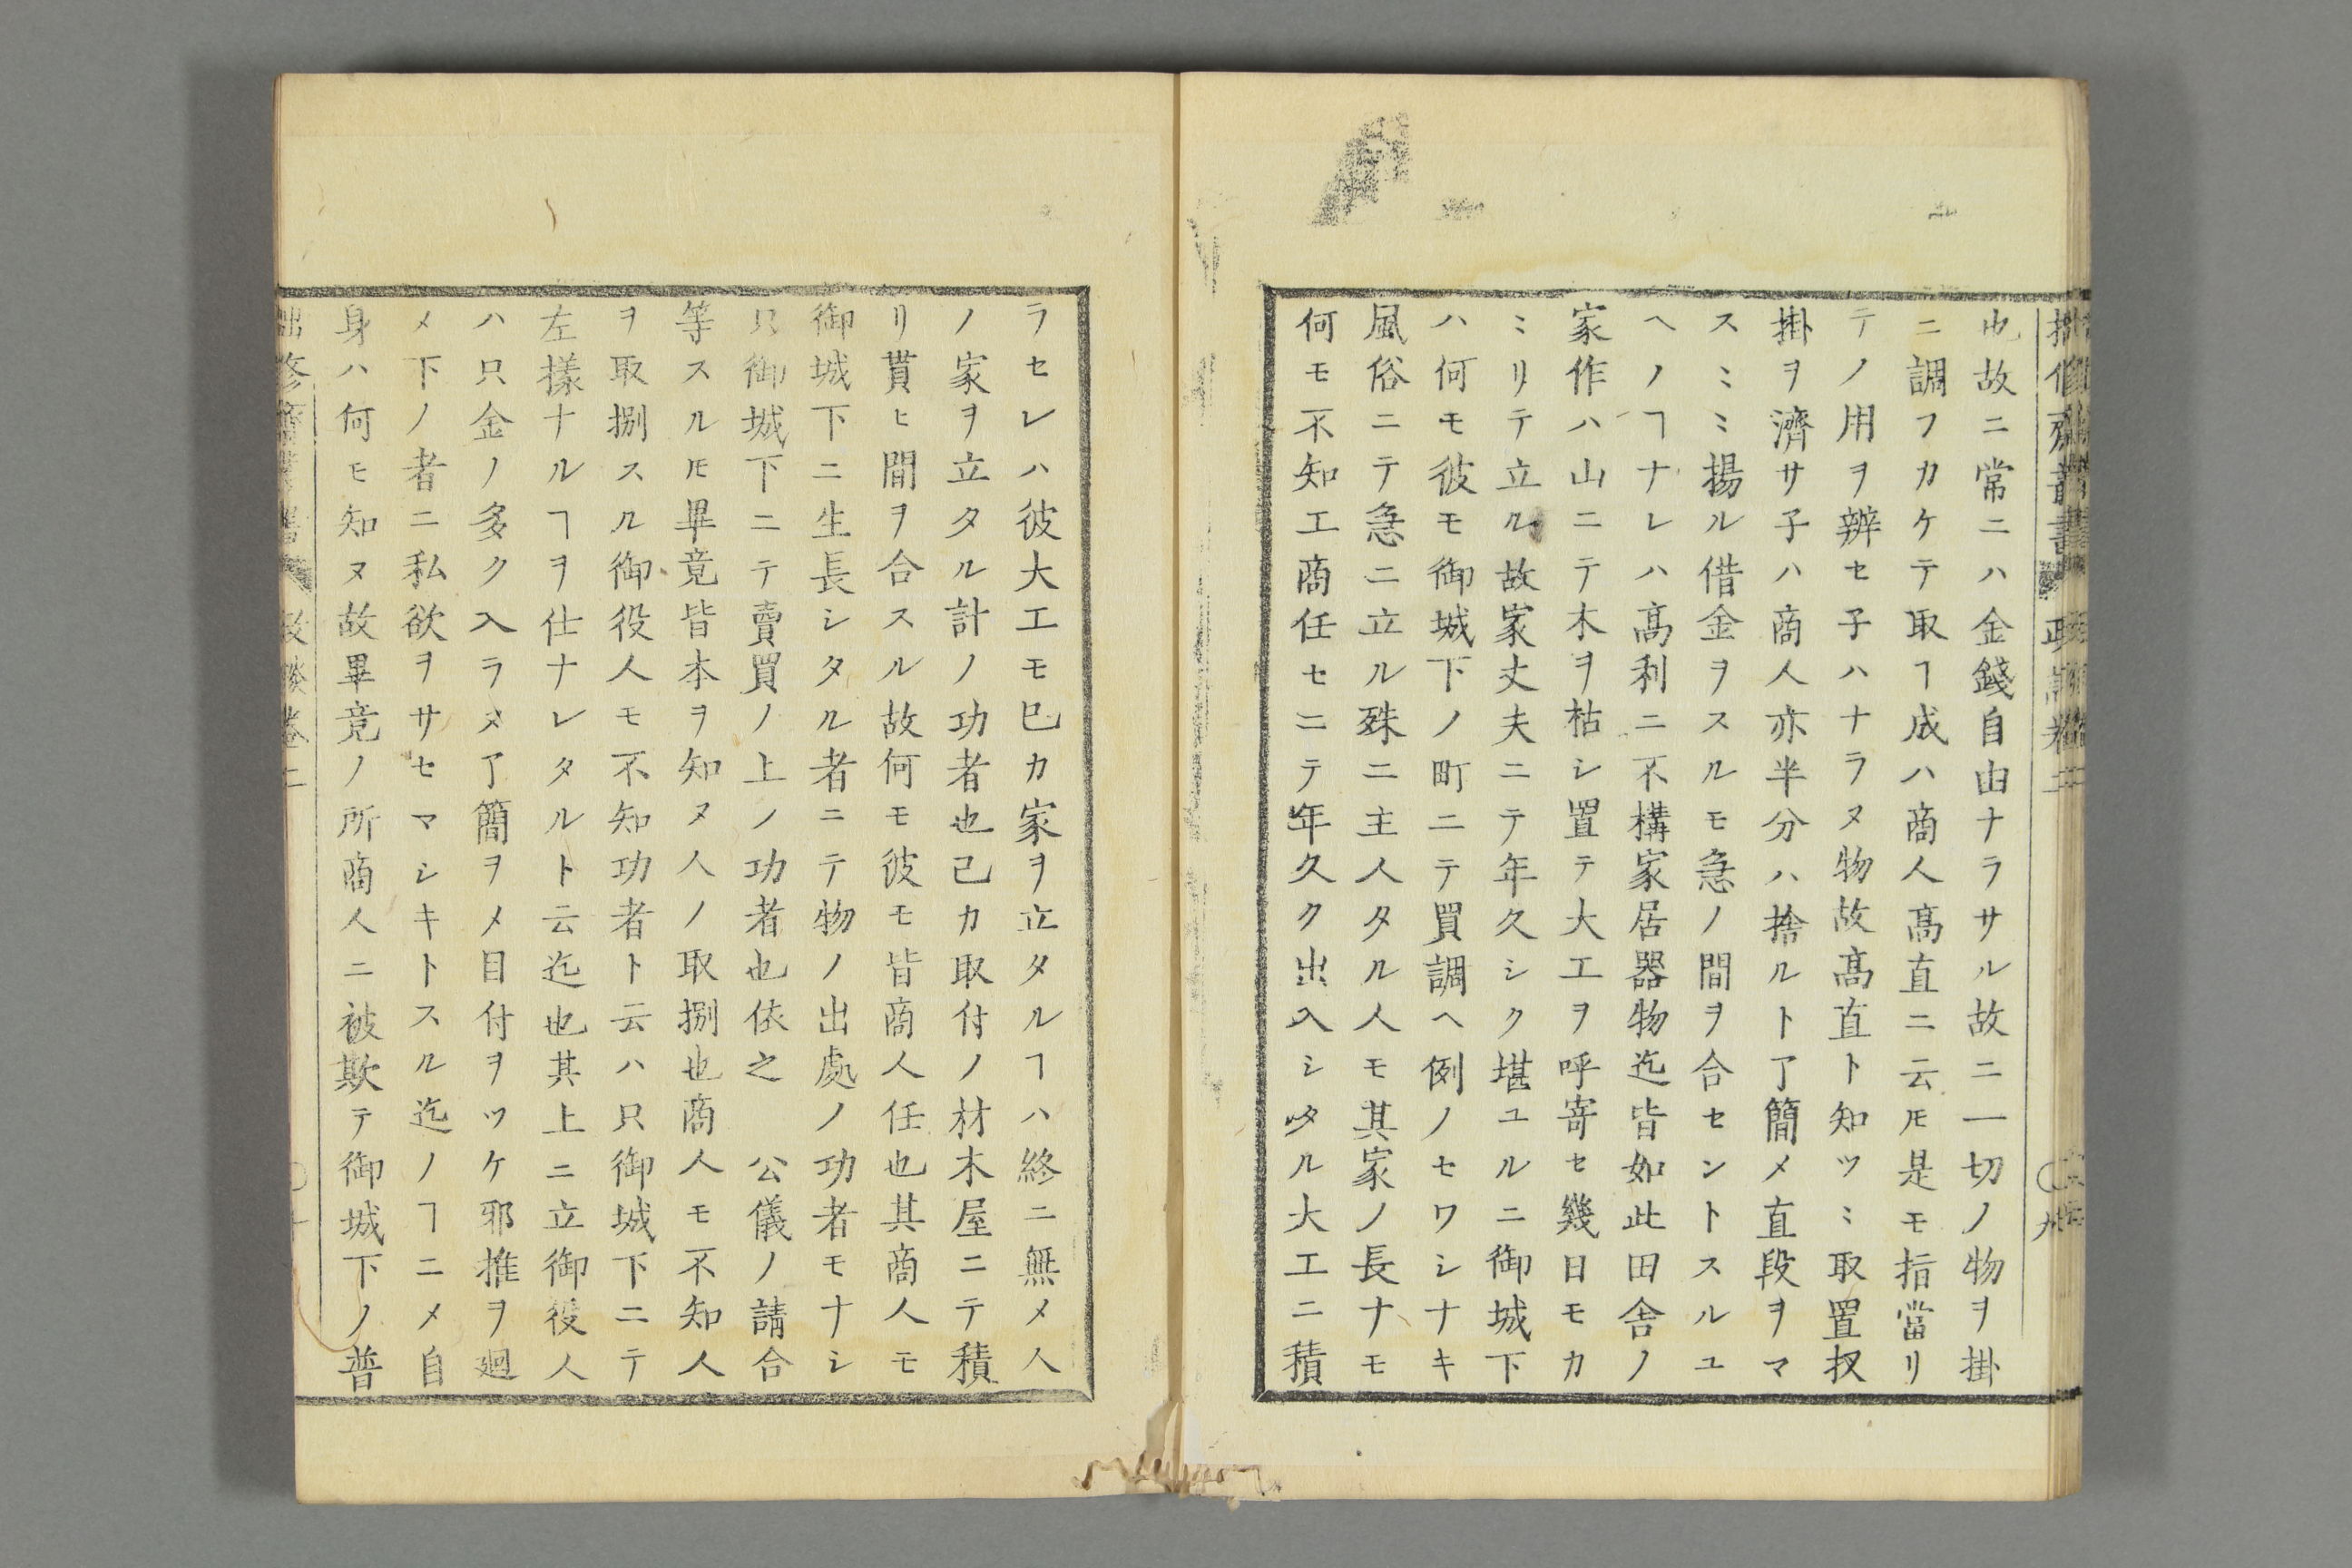 也故ニ常ニハ金錢自由ナラサル故ニ一切ノ物ヲ掛
ニ調フカケテ取ヿ成ハ商人髙直ニ云𪜈是モ指當リ
テノ用ヲ辨セ子ハナラヌ物故髙直ト知ツヽ取置扨
掛ヲ濟サ子ハ商人亦半分ハ捨ルト了簡メ直段ヲマ
スヽヽ揚ル借金ヲスルモ急ノ間ヲ合セントスルユ
ヘノヿナレハ髙利ニ不構家居器物迄皆如此田舎ノ
家作ハ山ニテ木ヲ枯シ置テ大工ヲ呼寄セ幾日モカ
ミリテ立ル故家丈夫ニテ年久シク堪ユルニ御城下
ハ何モ彼モ御城下ノ町ニテ買調ヘ例ノセワシナキ
風俗ニテ急ニ立ル殊ニ主人タル人モ其家ノ長ナモ
何モ不知工商任セニテ年久ク出入シタル大工ニ積
ラセレハ彼大工モ巳カ家ヲ立タルヿハ終ニ無メ人
ノ家ヲ立タル計ノ功者也己カ取付ノ材木屋ニテ積
リ貰ヒ間ヲ合スル故何モ彼モ皆商人任也其商人モ
御城下ニ生長シタル者ニテ物ノ出處ノ功者モナシ
只御城下ニテ賣買ノ上ノ功者也依之 公儀ノ請合
等スル𪜈畢竟皆本ヲ知ヌ人ノ取捌也商人モ不知人
ヲ取捌スル御役人モ不知功者ト云ハ只御城下ニテ
左樣ナルヿヲ仕ナレタルト云迄也其上ニ立御役人
ハ只金ノ多ク入ラヌ了簡ヲメ目付ヲツケ邪推ヲ廻
メ下ノ者ニ私欲ヲサセマシキトスル迄ノヿニメ自
身ハ何モ知ヌ故畢竟ノ所商人ニ被欺テ御城下ノ普